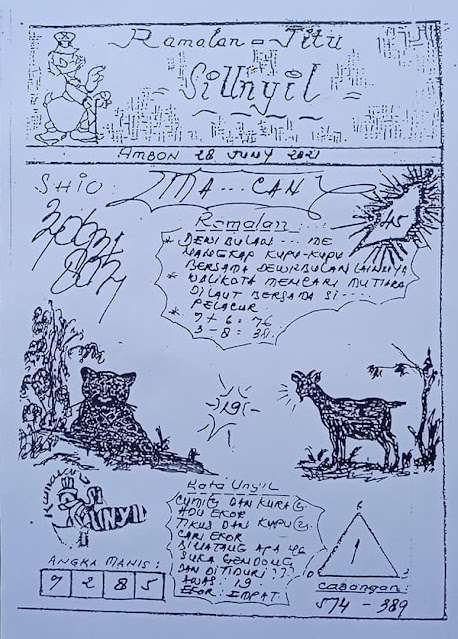 Ramalan = Jitu
Si Unyil
AMBON 28 JUNY 2021
SHIO:
MA...CAN
45
Ramalan:...
* DEWI BULAN ... ME
NANGKAP KUPU-KUPU
BERSAMA DEWI BULAN LAINNYA
* WALIKOTA MENCARI MUTIARA
DILAUT BERSAMA SI----
PELACUR.
* 7 + 6 = 76
3 - 8 = 38.
-19-
Kata Unyil
CUMIG DAN KURAG.
ADU EKOR
TIKUS DAN KUPU2.
CARI EKOR
BINATANG APA YG
SUKA GENDONG
DAN DITIDURI ??
AWAS: 19
EKOR: EMPAT
SI
UNYIL
ANGKA MANIS:
7 2 8 5
6
1
0 3
CABANGAN:
574 - 389